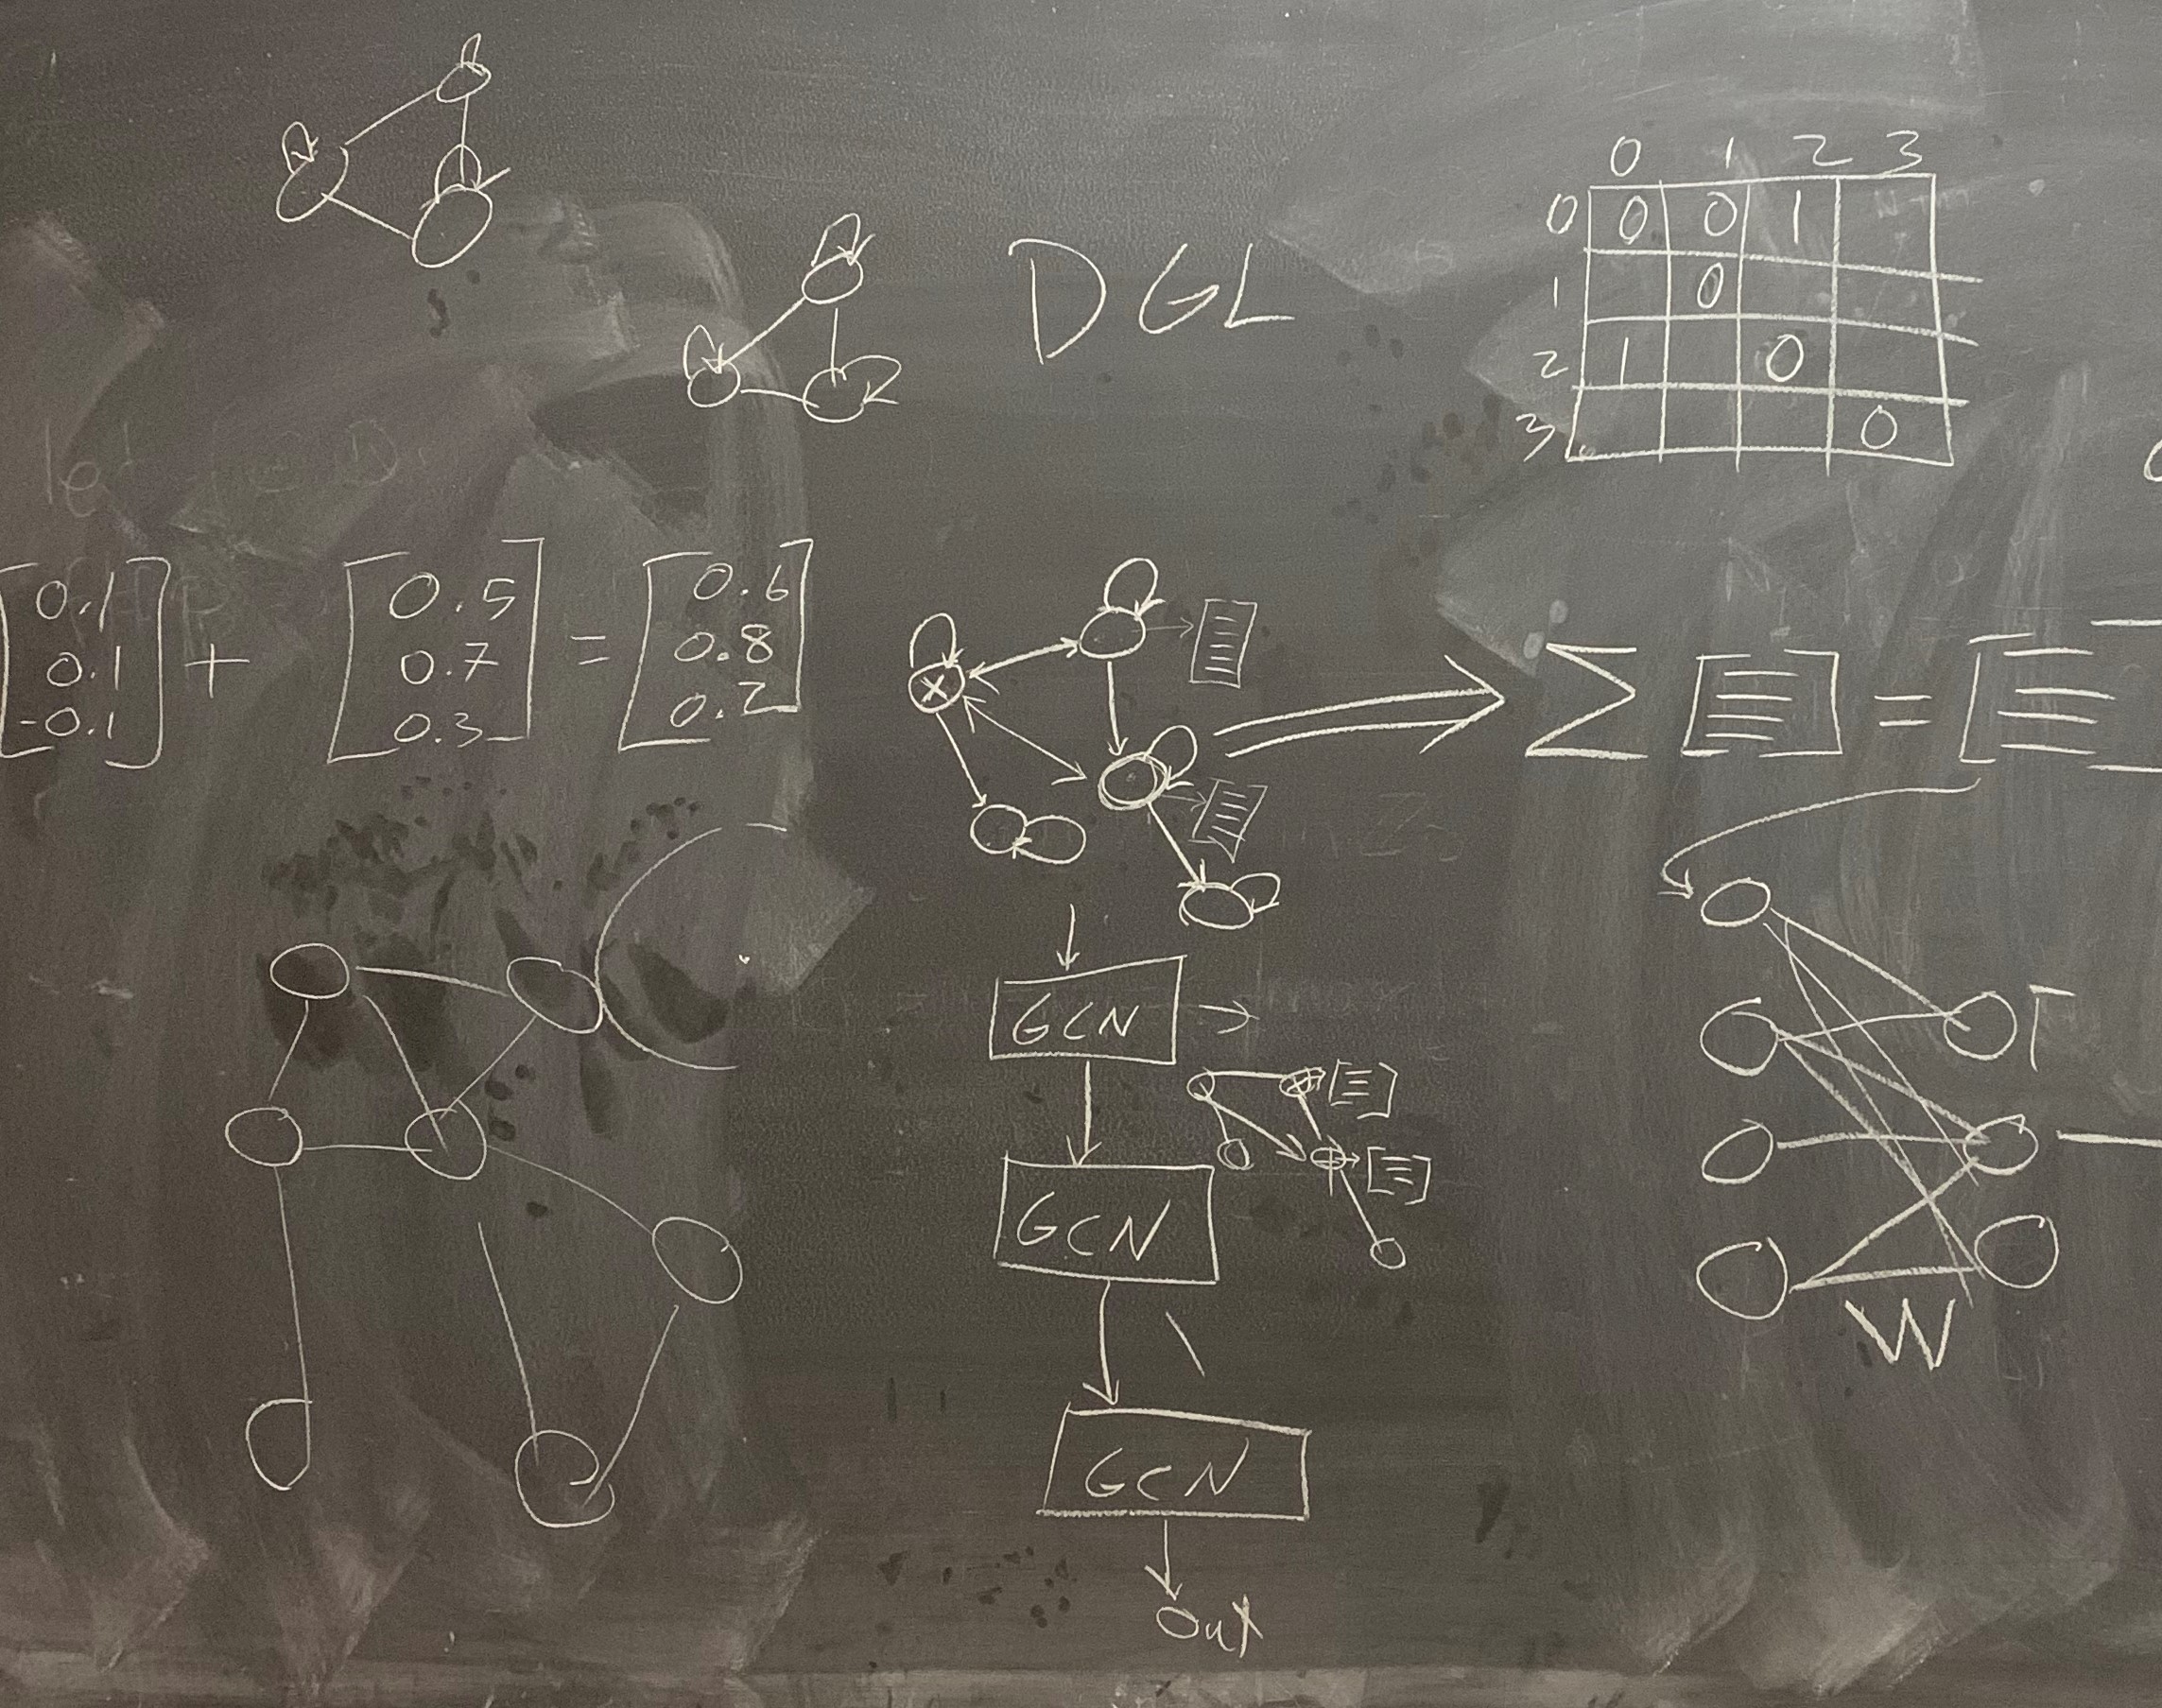 DGL
0 1 2 3
0 0 0 1
1 0
2 1 0
3 0
[0.1 0.1 -0.1] + [0.5 0.7 0.3] = [0.6 0.8 0.2]
x
Σ [ ] = [
GCN
GCN
GCN
Out
W